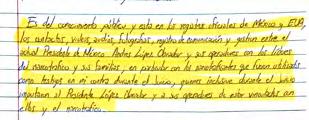 Es del conocimiento público y esta en los registros oficiales de México y EUA,
los contactos, videos, audios, fotografías, registro de comunicación y gestion entre el
actual Presidente de México Andrés López Obrador y sus operadores con los líderes
del narcotrafico y sus familias, en particular con los narcotraficantes que fueron utilizados
como testigos en mi contra durante el Juicio, quienes inclusive durante el Juicio
al Presidente López Obrador y a sus operadores de estar vinculados con
ellos y el narcotrafico.